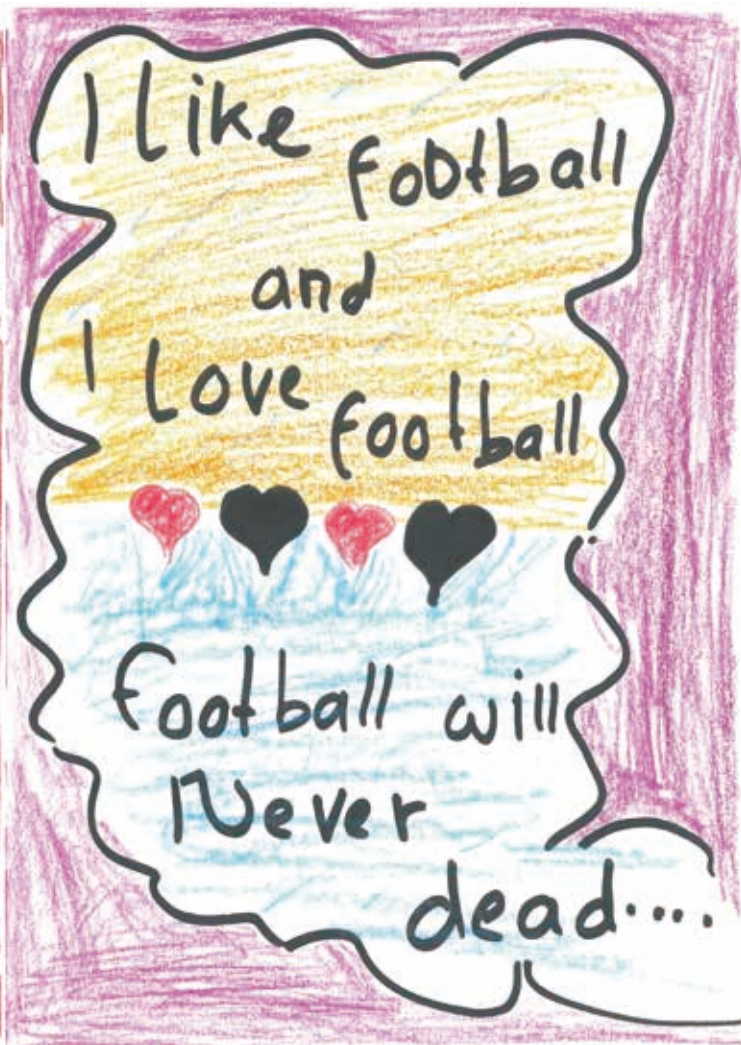 I like football
and
I love football
football will
Never
dead....